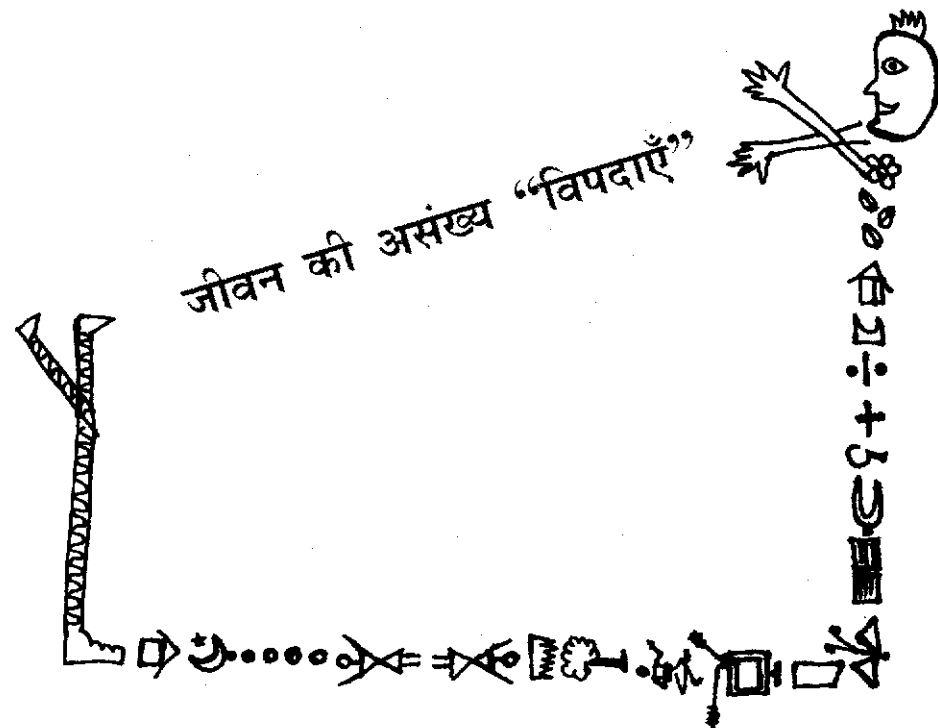 जीवन की असंख्य “विपदाएँ”